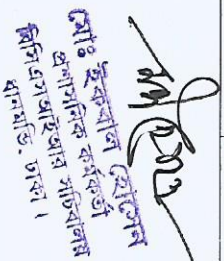 মোঃ ইকবাল হোসেন
প্রশাসনিক কর্মকর্তা
বিসিএসআইআর সচিবালয়
ধানমন্ডি, ঢাকা।